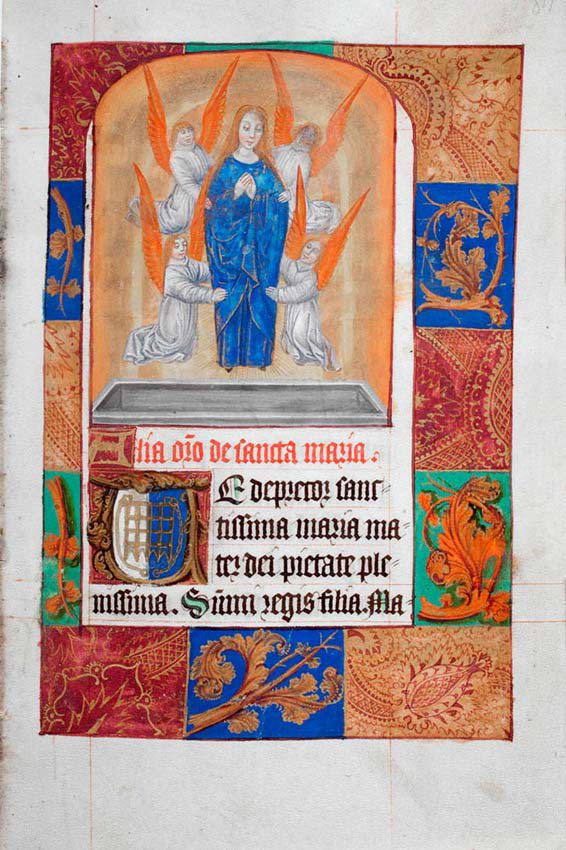 Alia orõ de sancta maria.
TE deprecor sanc=
tissima maria ma=
ter dei pietate ple=
nissima. Sũmi regis filia. Ma=